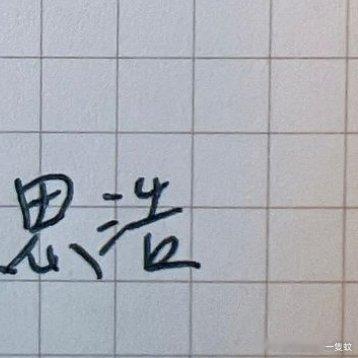 思浩
一隻蚊